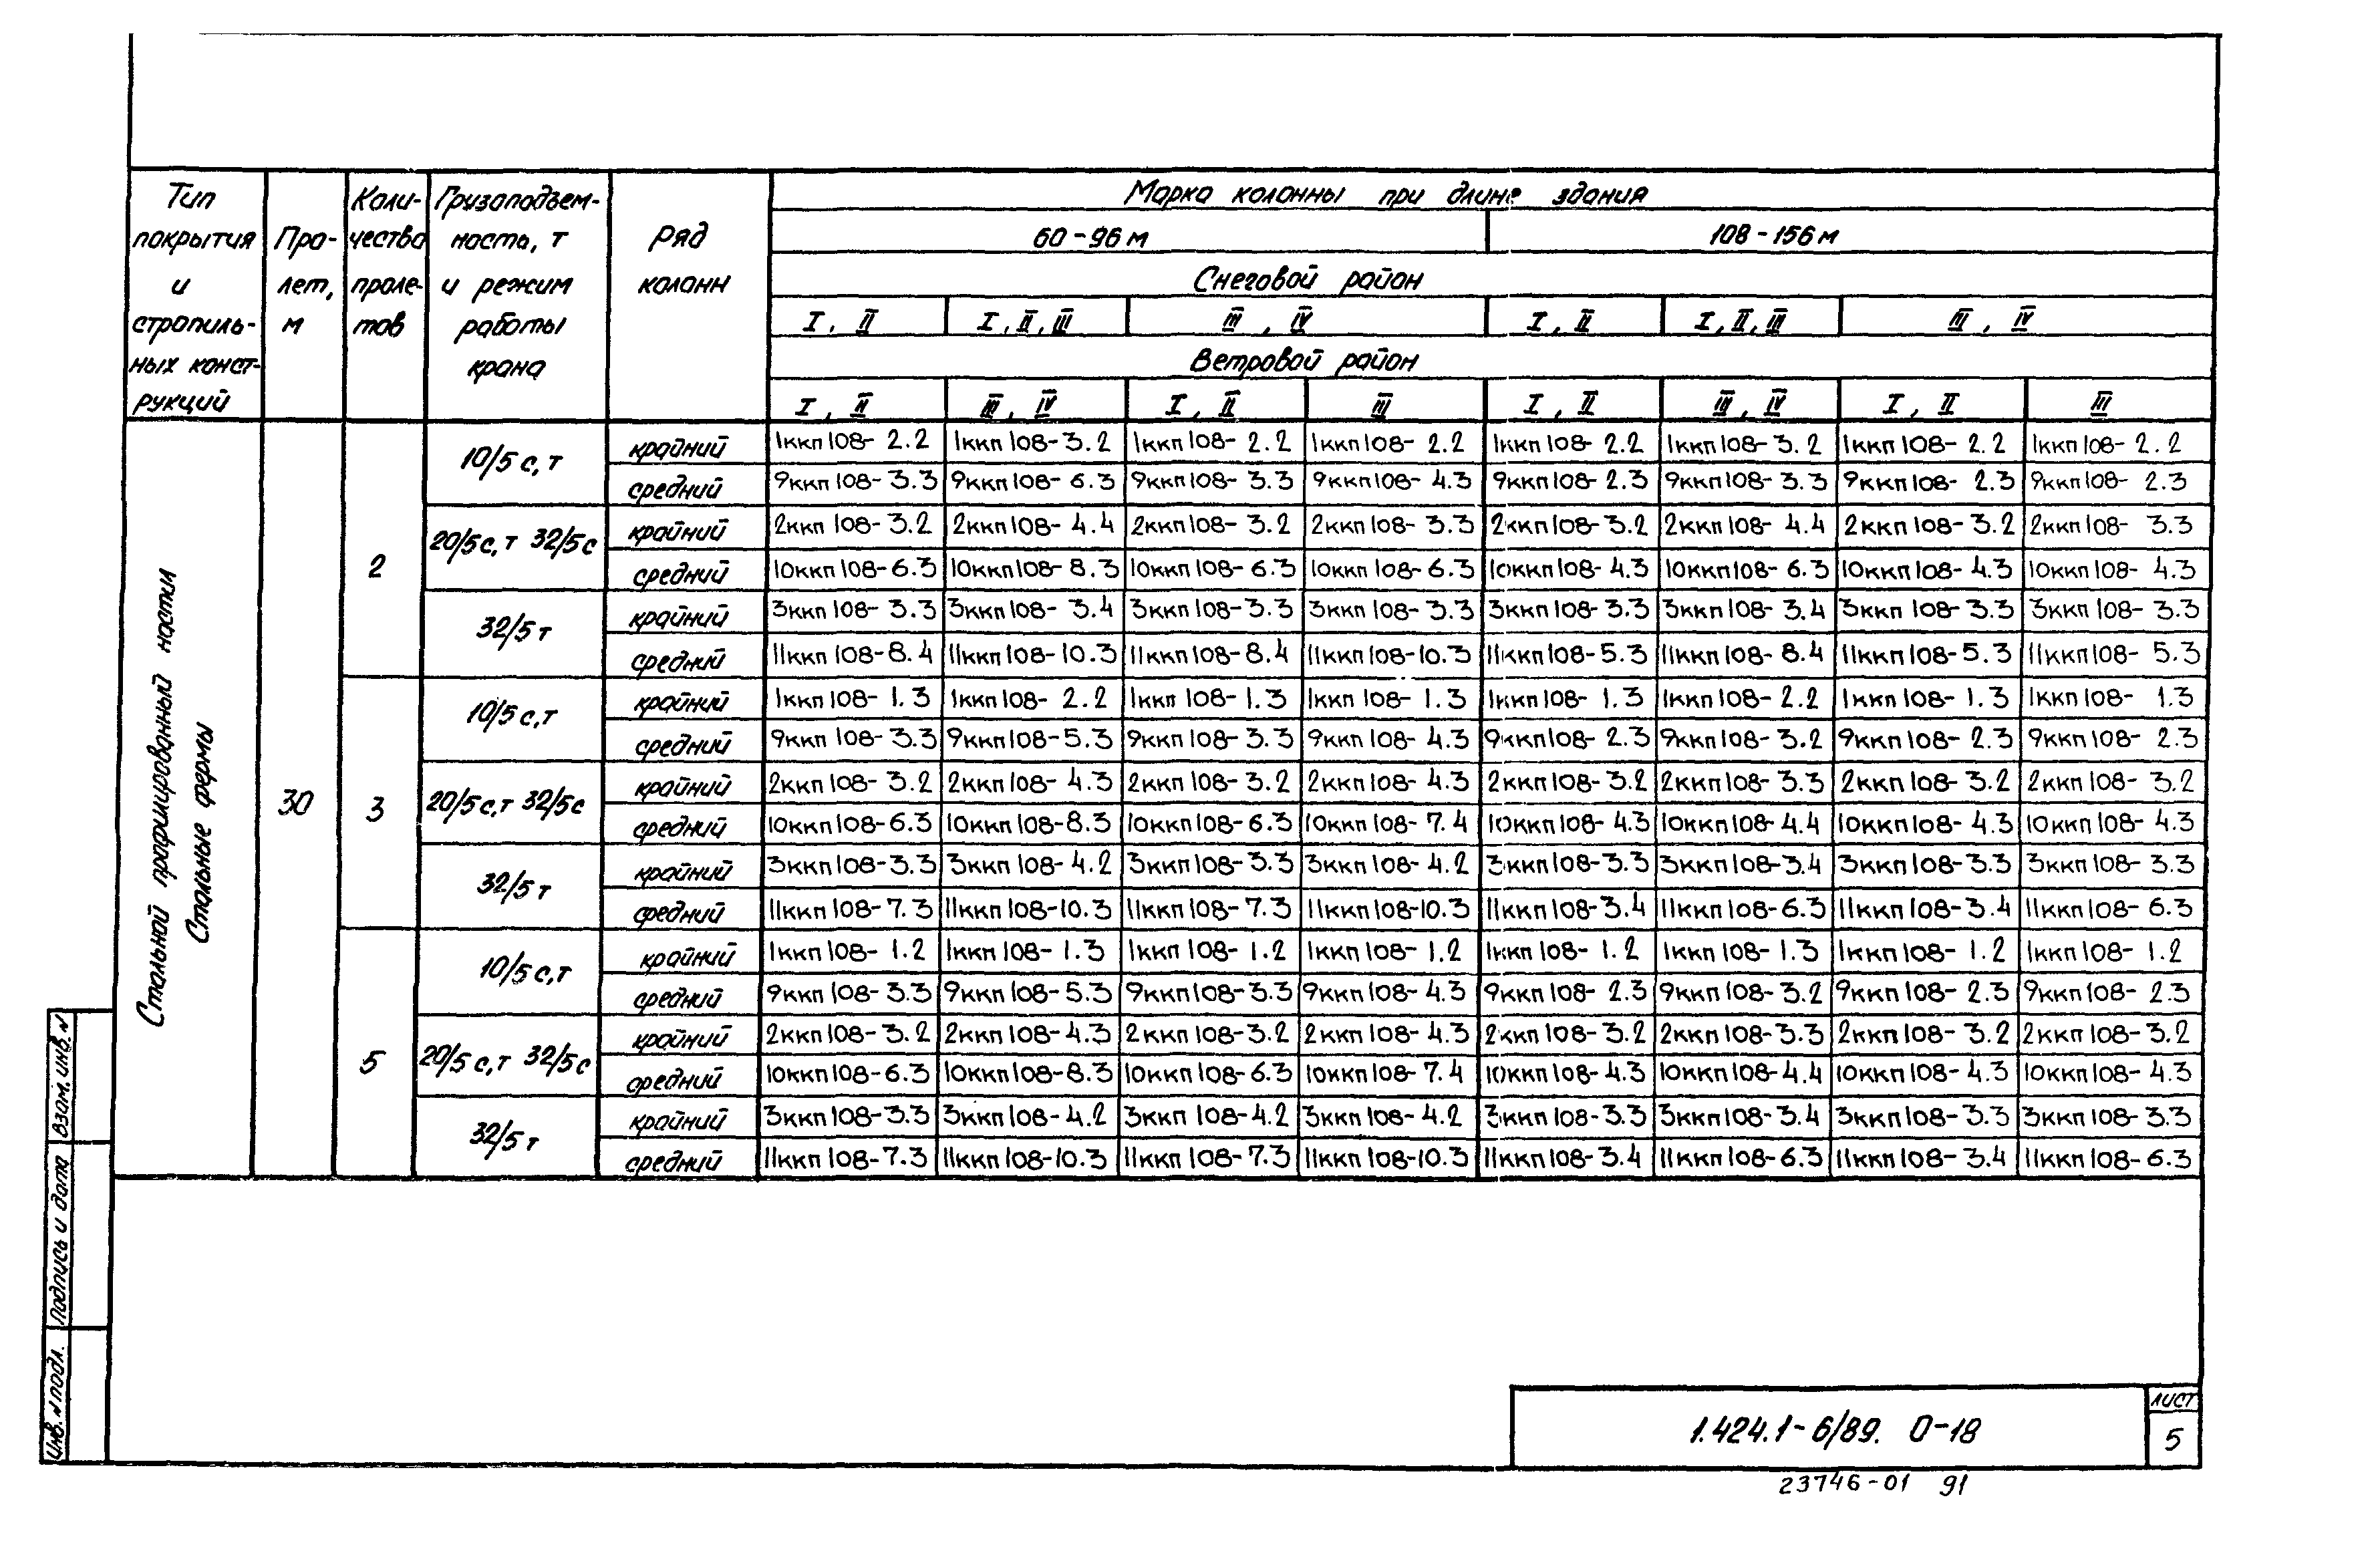 Тип покрытия и стропиль-ных конст-рукций
Про-лет, м
Коли-чество проле-тов
Грузоподъем-ность, т и режим работы крана
Ряд колонн
Марка колонны при длине здания
60-96 м 108-156 м
Снеговой район
I, II I, II, III III, IV I, II I, II, III III, IV
Ветровой район
I, II III, IV I, II III I, II III, IV I, II III
Стальной профилированный настил
Стальные фермы
30
2
10/5 с, т
крайний 1ккп108-2.2 1ккп108-3.2 1ккп108-2.2 1ккп108-2.2 1ккп108-2.2 1ккп108-3.2 1ккп108-2.2 1ккп108-2.2
средний 9ккп108-3.3 9ккп108-6.3 9ккп108-3.3 9ккп108-4.3 9ккп108-2.3 9ккп108-3.3 9ккп108-2.3 9ккп108-2.3
20/5с, т 32/5с
крайний 2ккп108-3.2 2ккп108-4.4 2ккп108-3.2 2ккп108-3.3 2ккп108-3.2 2ккп108-4.4 2ккп108-3.2 2ккп108-3.3
средний 10ккп108-6.3 10ккп108-8.3 10ккп108-6.3 10ккп108-6.3 10ккп108-4.3 10ккп108-6.3 10ккп108-4.3 10ккп108-4.3
32/5 т
крайний 3ккп108-3.3 3ккп108-3.4 3ккп108-3.3 3ккп108-3.3 3ккп108-3.3 3ккп108-3.4 3ккп108-3.3 3ккп108-3.3
средний 11ккп108-8.4 11ккп108-10.3 11ккп108-8.4 11ккп108-10.3 11ккп108-5.3 11ккп108-8.4 11ккп108-5.3 11ккп108-5.3
3
10/5 с, т
крайний 1ккп108-1.3 1ккп108-2.2 1ккп108-1.3 1ккп108-1.3 1ккп108-1.3 1ккп108-2.2 1ккп108-1.3 1ккп108-1.3
средний 9ккп108-3.3 9ккп108-5.3 9ккп108-3.3 9ккп108-4.3 9ккп108-2.3 9ккп108-3.2 9ккп108-2.3 9ккп108-2.3
20/5с, т 32/5с
крайний 2ккп108-3.2 2ккп108-4.3 2ккп108-3.2 2ккп108-4.3 2ккп108-3.2 2ккп108-3.3 2ккп108-3.2 2ккп108-3.2
средний 10ккп108-6.3 10ккп108-8.3 10ккп108-6.3 10ккп108-7.4 10ккп108-4.3 10ккп108-4.4 10ккп108-4.3 10ккп108-4.3
32/5 т
крайний 3ккп108-3.3 3ккп108-4.2 3ккп108-3.3 3ккп108-4.2 3ккп108-3.3 3ккп108-3.4 3ккп108-3.3 3ккп108-3.3
средний 11ккп108-7.3 11ккп108-10.3 11ккп108-7.3 11ккп108-10.3 11ккп108-3.4 11ккп108-6.3 11ккп108-3.4 11ккп108-6.3
5
10/5 с, т
крайний 1ккп108-1.2 1ккп108-1.3 1ккп108-1.2 1ккп108-1.2 1ккп108-1.2 1ккп108-1.3 1ккп108-1.2 1ккп108-1.2
средний 9ккп108-3.3 9ккп108-5.3 9ккп108-3.3 9ккп108-4.3 9ккп108-2.3 9ккп108-3.2 9ккп108-2.3 9ккп108-2.3
20/5 с, т 32/5с
крайний 2ккп108-3.2 2ккп108-4.3 2ккп108-3.2 2ккп108-4.3 2ккп108-3.2 2ккп108-3.3 2ккп108-3.2 2ккп108-3.2
средний 10ккп108-6.3 10ккп108-8.3 10ккп108-6.3 10ккп108-7.4 10ккп108-4.3 10ккп108-4.4 10ккп108-4.3 10ккп108-4.3
32/5 т
крайний 3ккп108-3.3 3ккп108-4.2 3ккп108-4.2 3ккп108-4.2 3ккп108-3.3 3ккп108-3.4 3ккп108-3.3 3ккп108-3.3
средний 11ккп108-7.3 11ккп108-10.3 11ккп108-7.3 11ккп108-10.3 11ккп108-3.4 11ккп108-6.3 11ккп108-3.4 11ккп108-6.3
Взам. инв. N
Подпись и дата
Инв. N подл.
1.424.1-6/89. 0-18
лист
5
23746-01 91